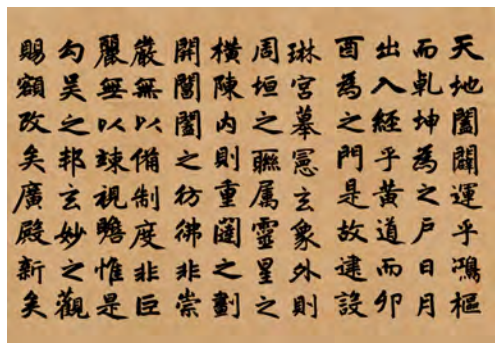 天地闔闢運乎鴻樞
而乹坤為之戶日月
出入經乎黃道而卯
酉為之門是故建設
琳宮摹憲玄象外則
周垣之聯属靈星之
橫陳内則重闥之劃
開閶闔之彷彿非崇
嚴無以備制度非巨
麗無以竦視瞻惟是
勾吳之邦玄妙之觀
賜額改矣廣殿新矣